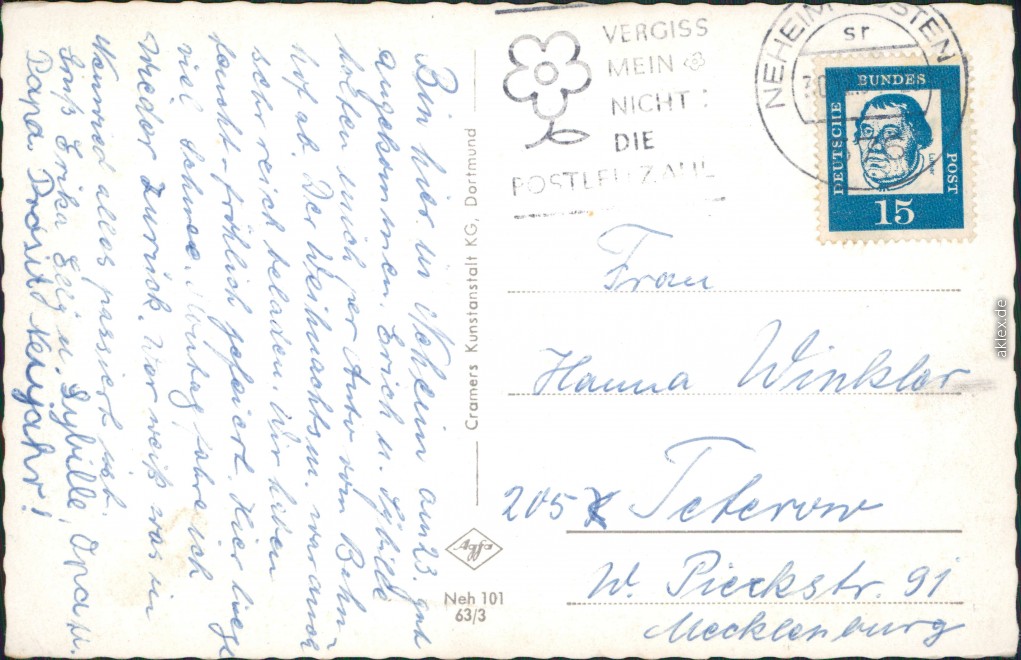 Bin hier in Neheim am 23. gut
angekommen. Erich u. Sybille
holten mich per Auto vom Bahn-
hof ab. Der Weihnachtsm. war auch
sehr reich beladen. Wir haben
feucht-fröhlich gefeiert. Hier liegt
viel Schnee. Montag fahre ich
wieder zurück. Wer weiß was in
alles passiert ist.
Gruß Erika Elij u. Sybille, Opa u.
Papa. Prosit Neujahr!
Cramers Kunstanstalt KG, Dortmund
Agfa
Neh 101
63/3
VERGISS
MEIN
NICHT:
DIE
POSTLEITZAHL
NEHEIM-HÜSTEN
sr
DEUTSCHE
BUNDES
POST
15
Frau
Hanna Winkler
205 Teterow
W. Pieckstr. 91
Mecklenburg
aklex.de